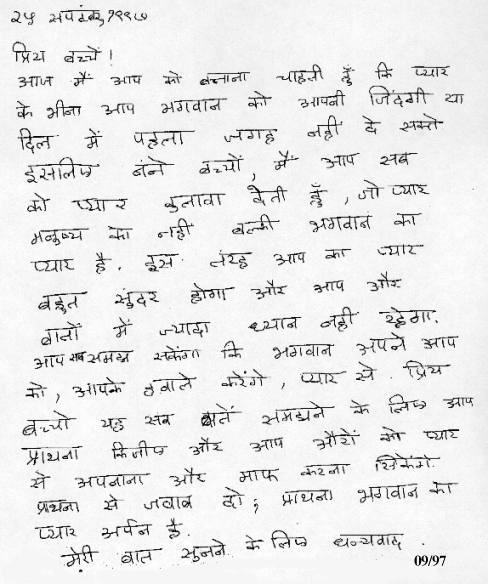 २५ सपटंबर, १९९७
प्रिय बच्चों!
आज मैं आप को बताना चाहती हूँ कि प्यार
के भीना आप भगवान को आपनी जिंदगी या
दिल में पहला जगह नहीं दे सक्ते
इसलिए बंनो बच्चों, मैं आप सब
को प्यार बुलावा देती हूँ, जो प्यार
मनुष्य का नही बल्की भगवान का
प्यार है. इस तंरह आप का प्यार
बहुत सुंदर होगा और आप और
बातों में ज्यादा ध्यान नही रहेगा.
आप सब समझ सकेंगा कि भगवान अपने आप
को, आपके हवाले करेंगे, प्यार से. प्रिय
बच्चो यह सब बातें समझने के लिए आप
प्राथना किजीए और आप औरों को प्यार
से अपनाना और माफ करना सिकेंगे.
प्राथना से जवाब दो; प्राथना भगवान का
प्यार अर्पन है.
मेरी बात सुनने के लिए धन्यवाद.
09/97